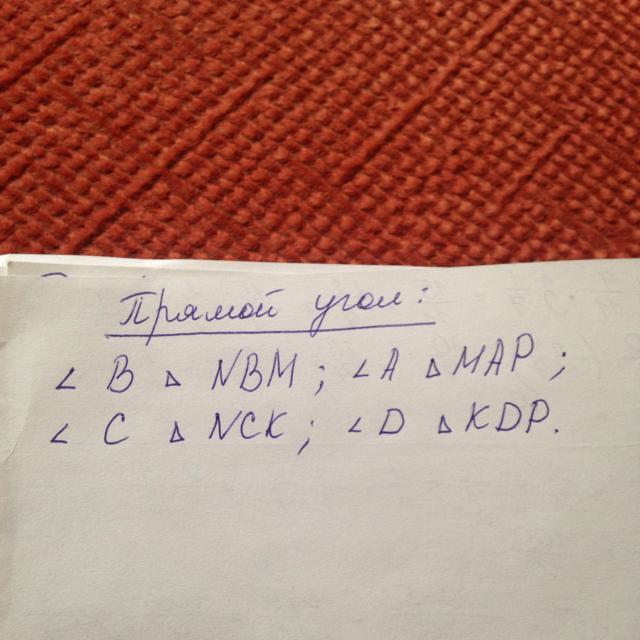 Прямой угол:
∠ B △ NBM; ∠A △MAP;
∠ C △ NCK; ∠D △KDP.